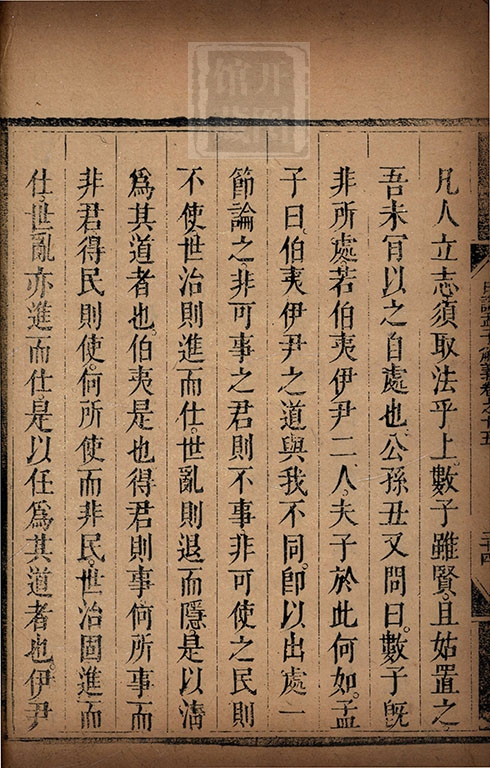 凡人立志須取法乎上。數子雖賢。且姑置之。
吾未肎以之自處也。公孫丑又問曰。數子旣
非所處。若伯夷伊尹二人。夫子於此何如。孟
子曰。伯夷伊尹之道與我不同。卽以出處一
節論之。非可事之君則不事非可使之民則
不使世治則進而仕。世亂則退而隱是以清
爲其道者也。伯夷是也得君則事何所事而
非君得民則使。何所使而非民。世治固進而
仕。世亂亦進而仕。是以任爲其道者也。伊尹
孟子
義卷之十五
二十四